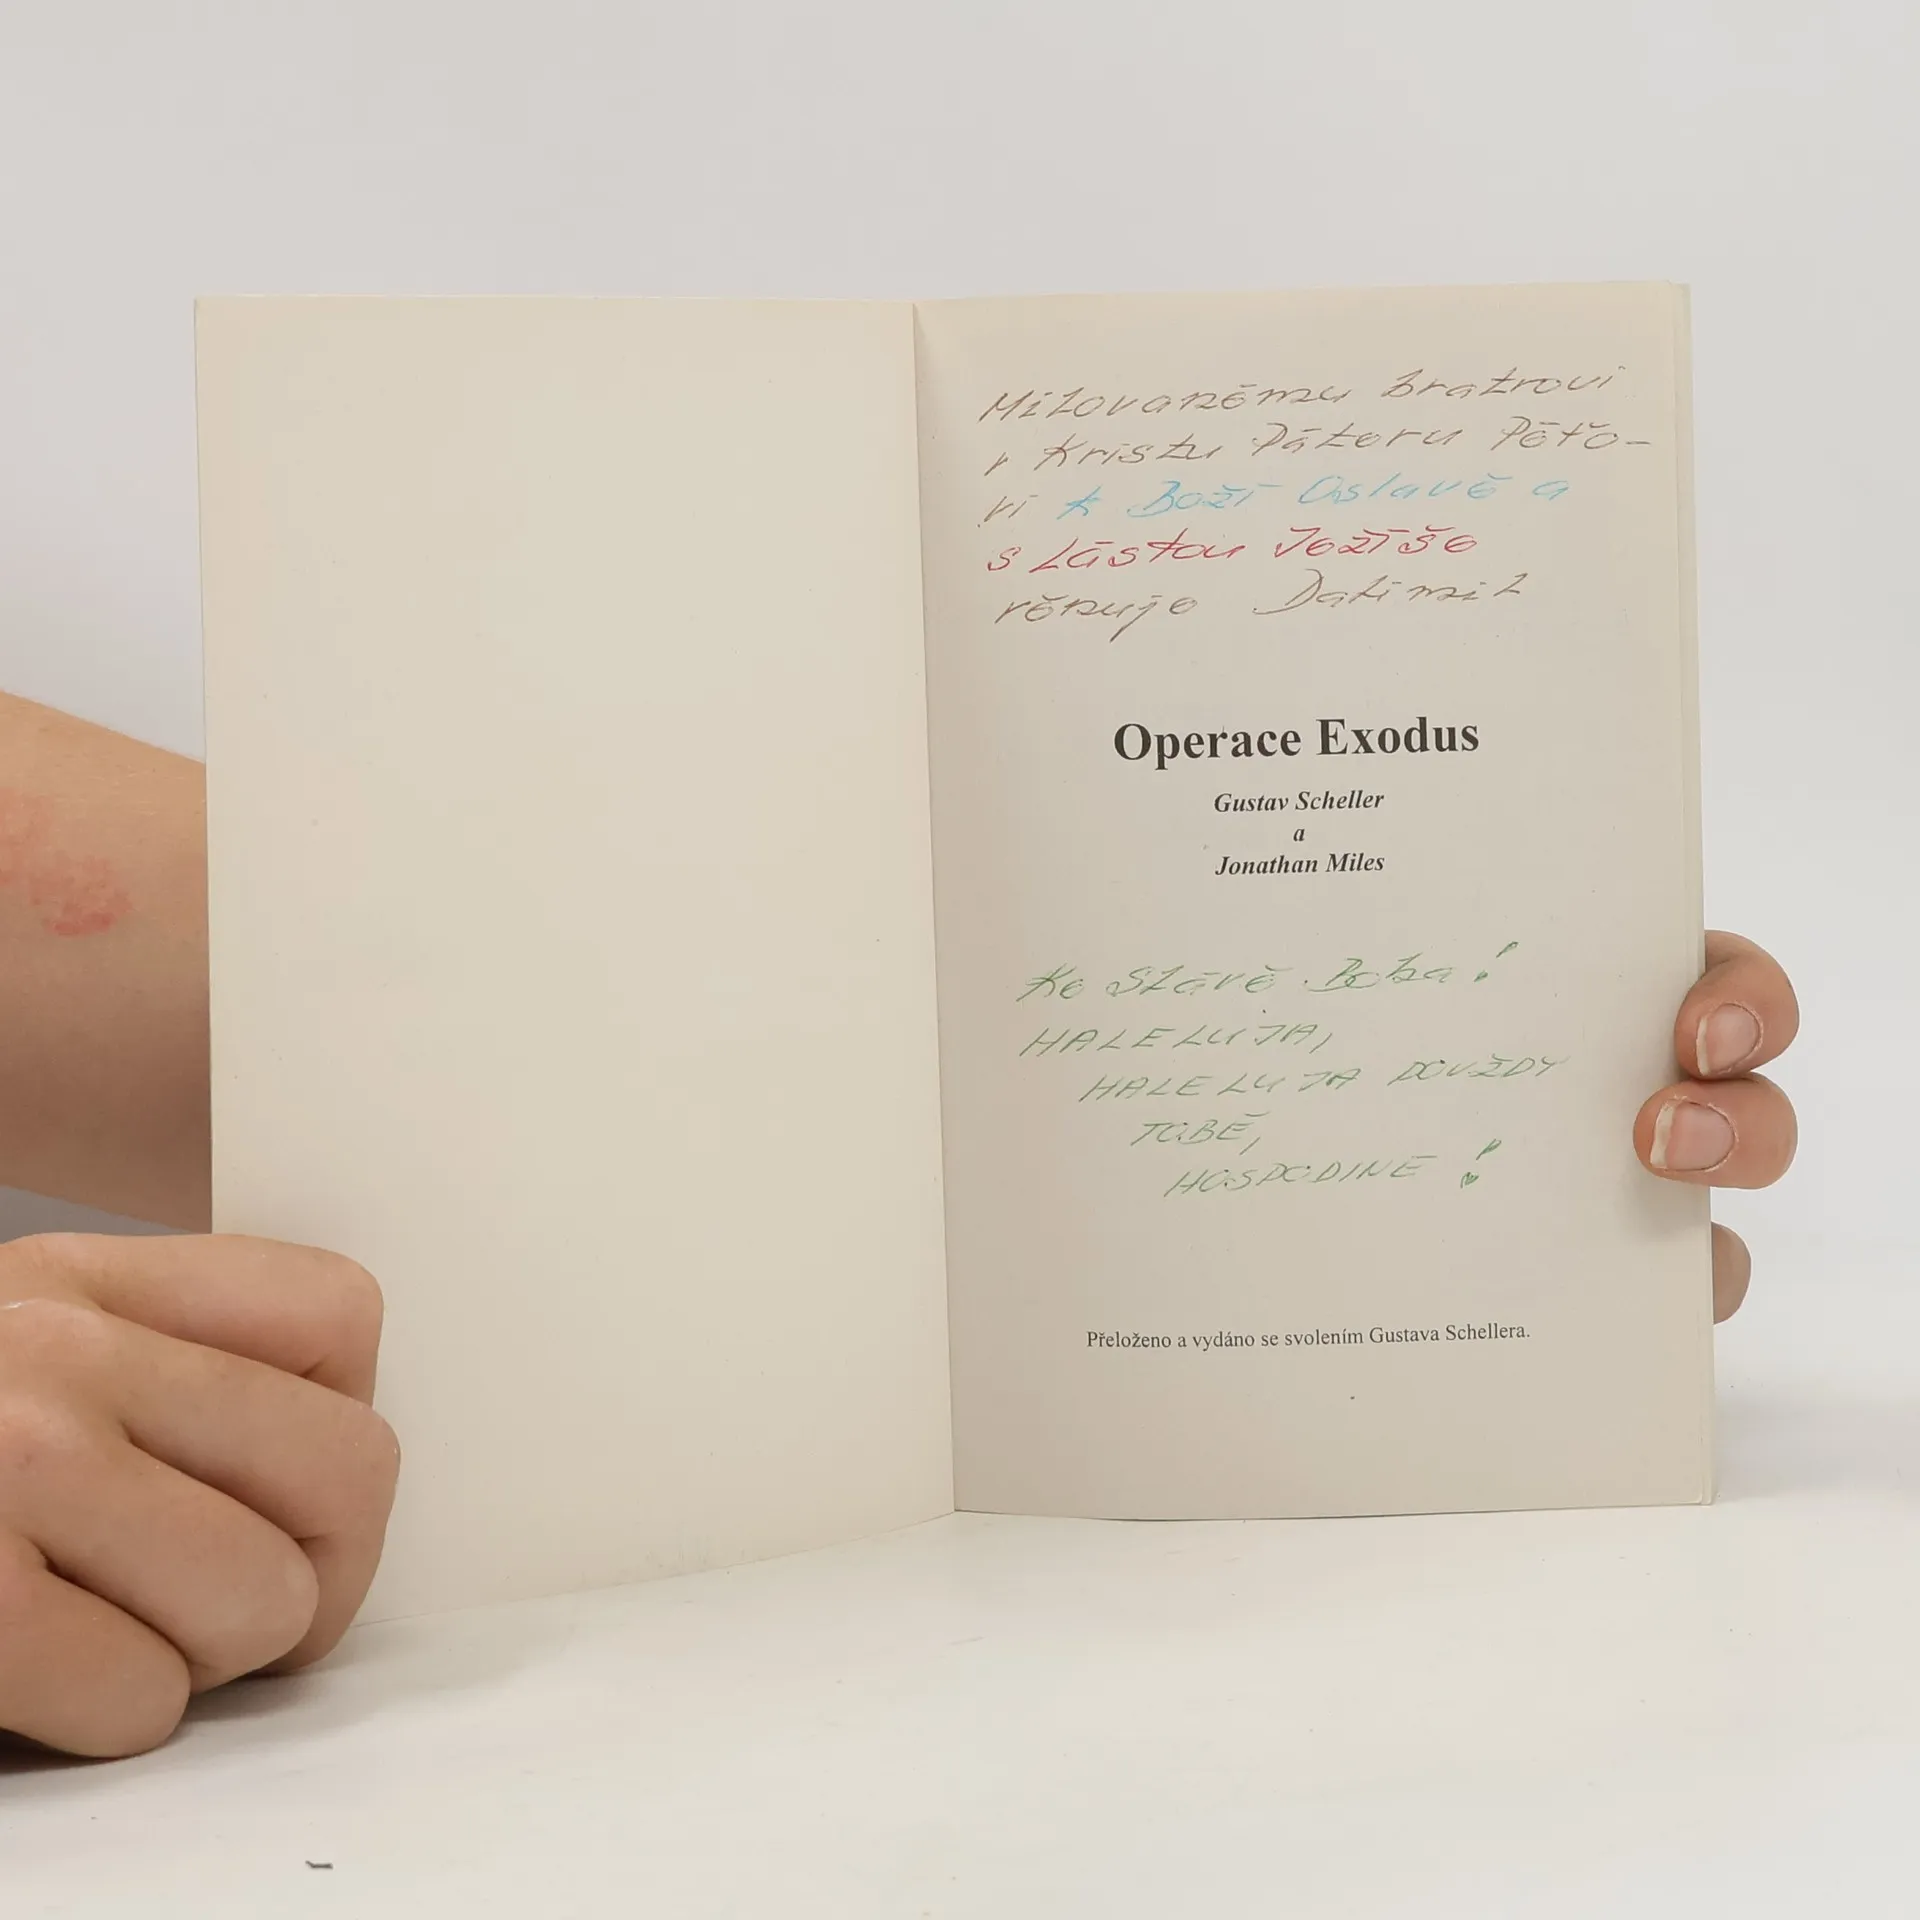 Milovanému bratrovi
v Kristu Páteru Péťo-
vi k Boží Oslavě a
s Láskou Ježíše
věnuje Dalimil
Operace Exodus
Gustav Scheller
a
Jonathan Miles
Ke Slávě Boha!
HALELUJA,
HALELUJA DOVŽDY
TOBĚ,
HOSPODINE!
Přeloženo a vydáno se svolením Gustava Schellera.